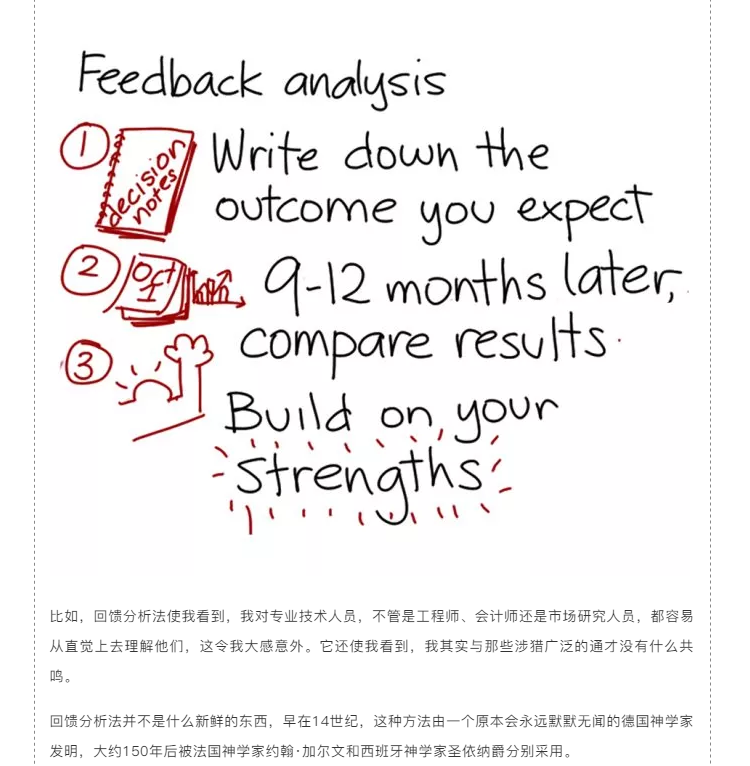 Feedback analysis
1 Write down the
decision
notes
outcome you expect
2 Oct
1
9-12 months later,
compare results.
3 Build on your
strengths
比如，回馈分析法使我看到，我对专业技术人员，不管是工程师、会计师还是市场研究人员，都容易
从直觉上去理解他们，这令我大感意外。它还使我看到，我其实与那些涉猎广泛的通才没有什么共
鸣。
回馈分析法并不是什么新鲜的东西，早在14世纪，这种方法由一个原本会永远默默无闻的德国神学家
发明，大约150年后被法国神学家约翰·加尔文和西班牙神学家圣依纳爵分别采用。